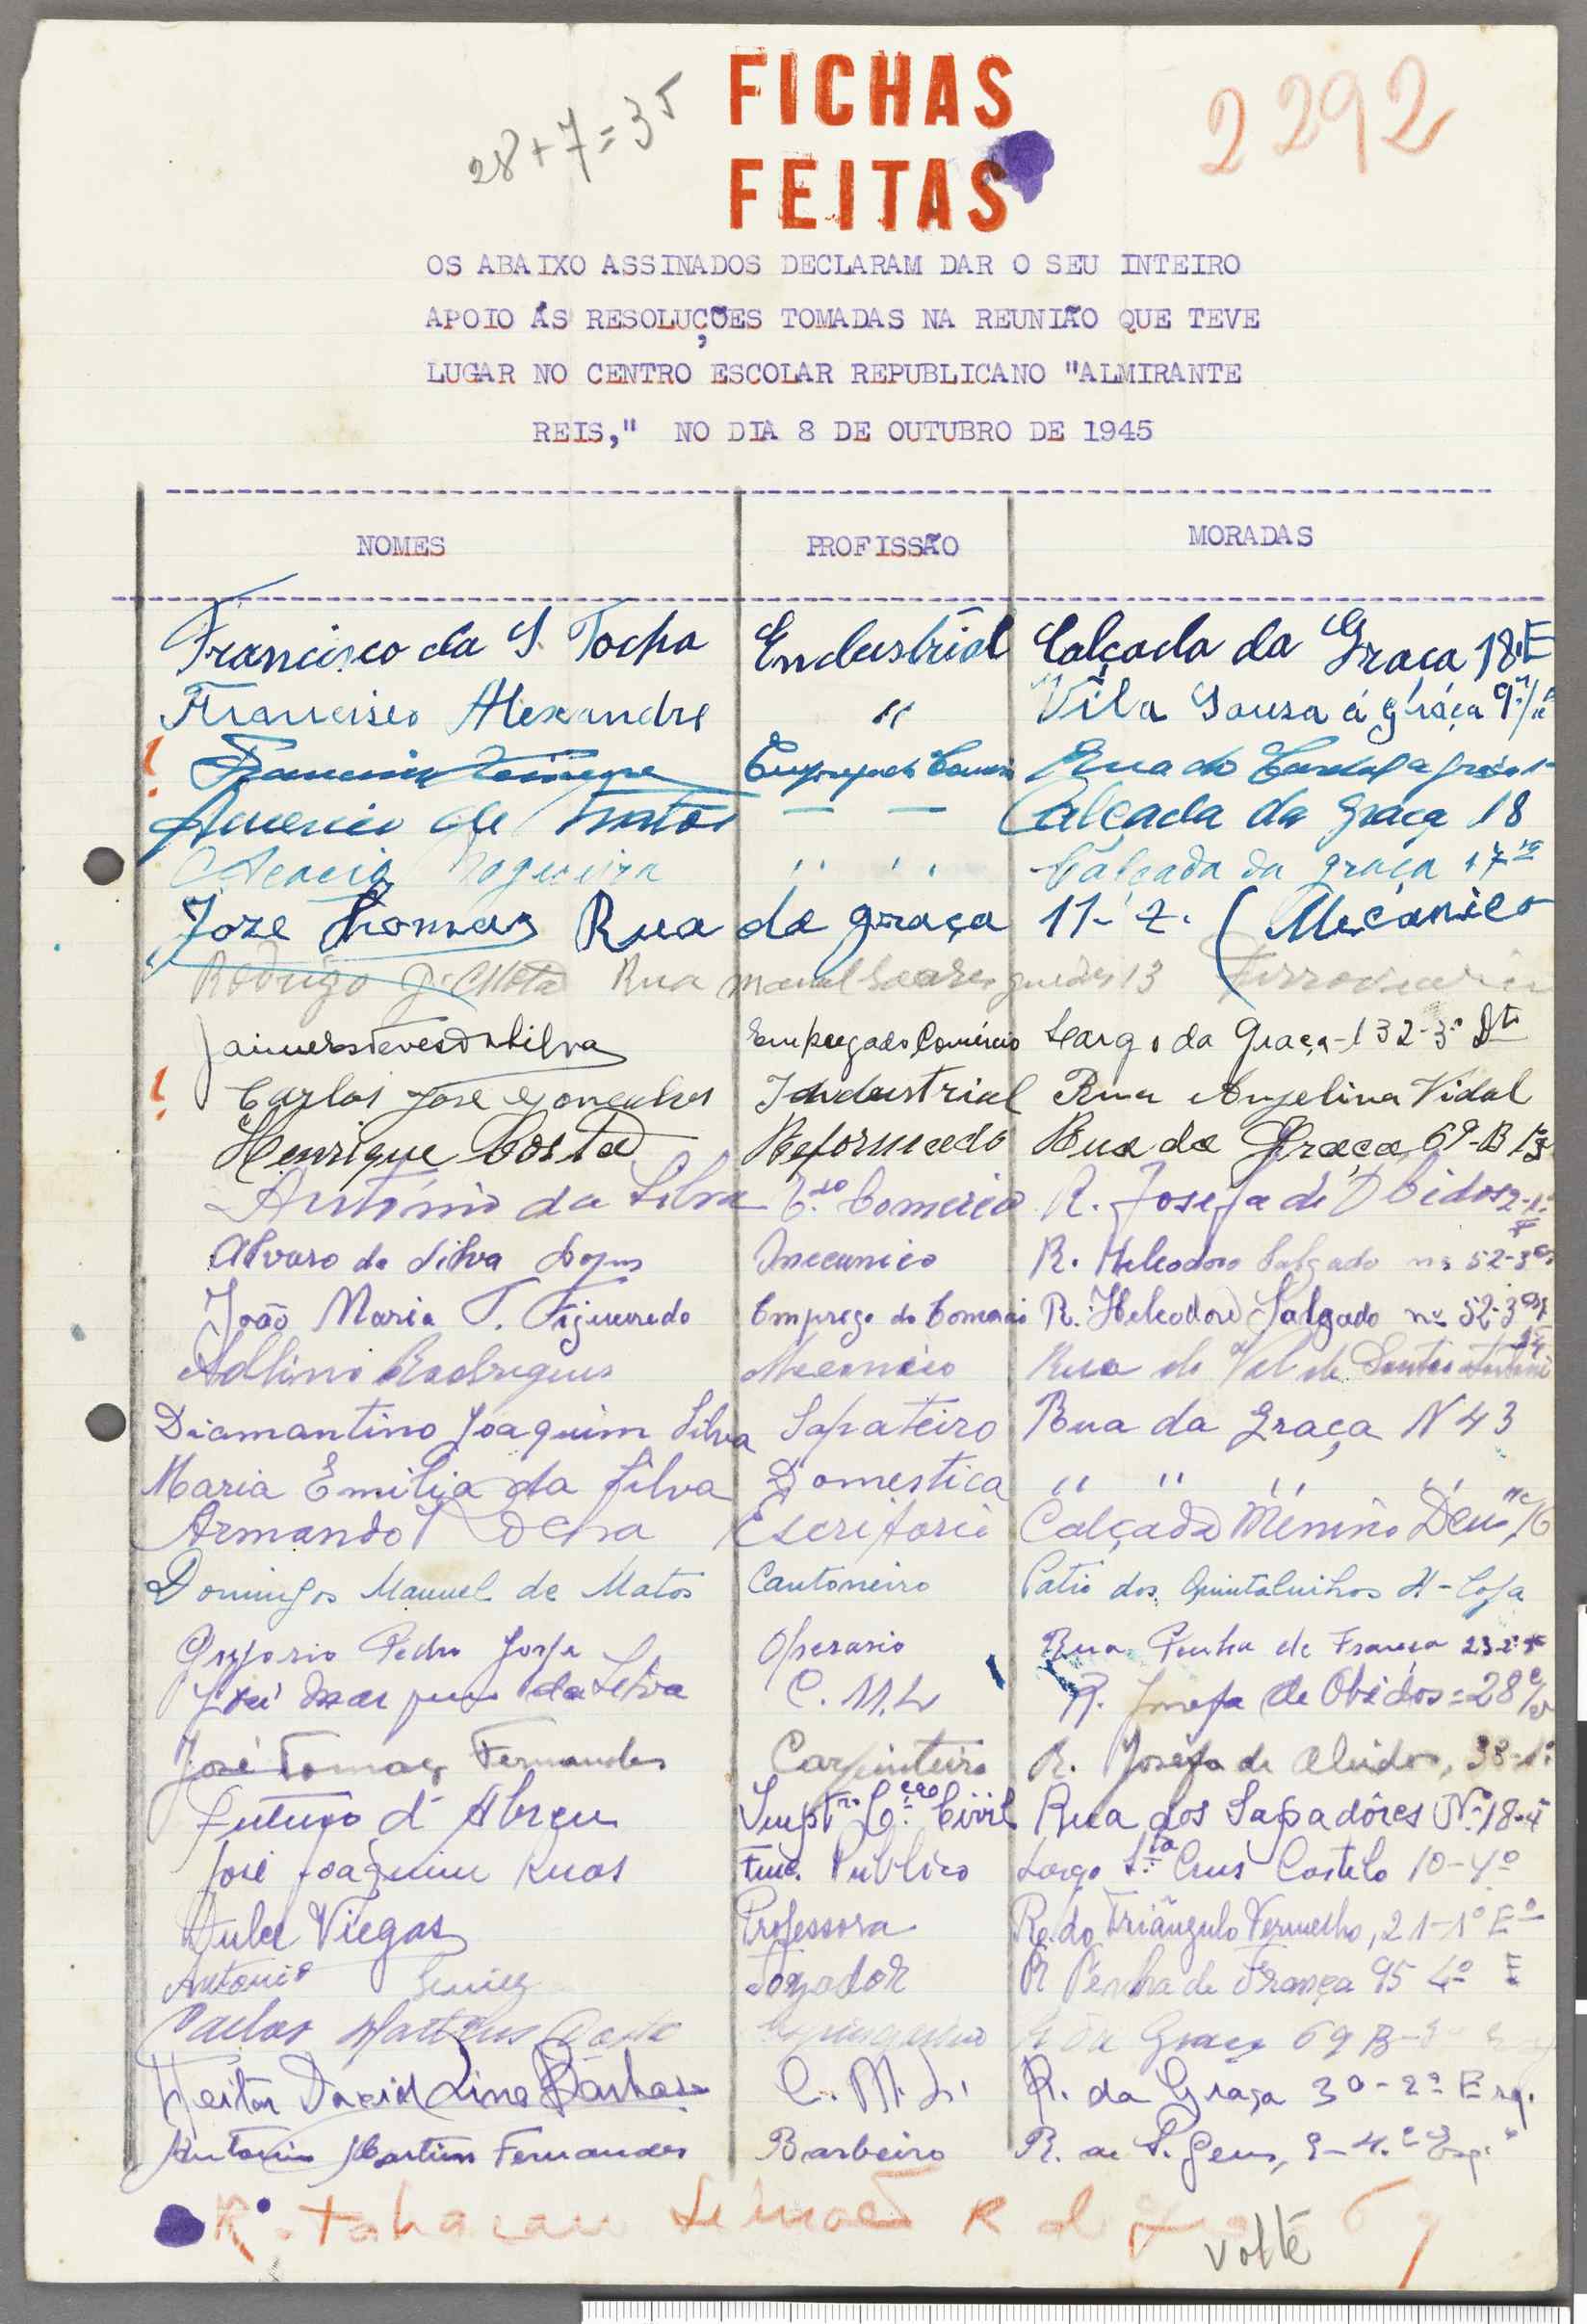 FICHAS
FEITAS
28+7=35
2292
OS ABAIXO ASSINADOS DECLARAM DAR O SEU INTEIRO
APOIO ÁS RESOLUÇÕES TOMADAS NA REUNIÃO QUE TEVE
LUGAR NO CENTRO ESCOLAR REPUBLICANO "ALMIRANTE
REIS," NO DIA 8 DE OUTUBRO DE 1945
NOMES PROFISSÃO MORADAS
Francisco da S. Tocha Endustrial Calçada da Graça 18.E
Francisco Alexandre " Vila Sousa á graça
Rua do
Americo de — — Calçada da Graça 18
Acacio Nogueira " " Calçada da graça 17
Joze Thomaz Rua da graça 11-2. (Mecanico
Rodrigo J. Mota Rua Manuel Soares guedes 13 Ferroviario
Jaime Esteves da Silva Empregado Comércio Largo da Graça-132-3º Dto
Carlos José Gonçalves Industrial Rua Angelina Vidal
Henrique Costa Reformado Rua da Graça 69-B
António da Silva E.do Comercio R. Josefa de Obidos
Alvaro da Silva Lopes Mecanico R. Heleodoro Salgado nº 52-3º
João Maria T. Figueiredo Emprego do Comercio R. Heleodoro Salgado nº 52-3º
Adlino Rodrigues Mecanico Rua do Val de Santo Antonio
Diamantino Joaquim Silva Sapateiro Rua da Graça N 43
Maria Emilia da Silva Domestica " " " "
Armando Escritorio Calçada Menino Deus
Domingos Manuel de Matos Cantoneiro Patio dos Quintalinhos - Loja
Gregorio Pedro Jorge Operario Rua Penha de França
José da Silva C. M. L. R. Josefa de Obidos = 28
José Tomaz Fernandes Carpinteiro R. Josefa de Obidos, 38-1º
Futuro d'Abreu Civil Rua dos Sapadôres Nº 18-
José Joaquim Ruas Func. Publico Largo Sta Crus Castelo 10-4º
Dulce Viegas Professora R. do Triângulo Vermelho, 21-1º Eº
Antonio R Penha de França 95 4º E
Carlos R da Graça 69 B
Heitor David Lima Barbosa C. M. L. R. da Graça 30-2º Esq.
Antonio Martins Fernandes Barbeiro R. da S. Gens, 9-4.º Esq.
R.
volte